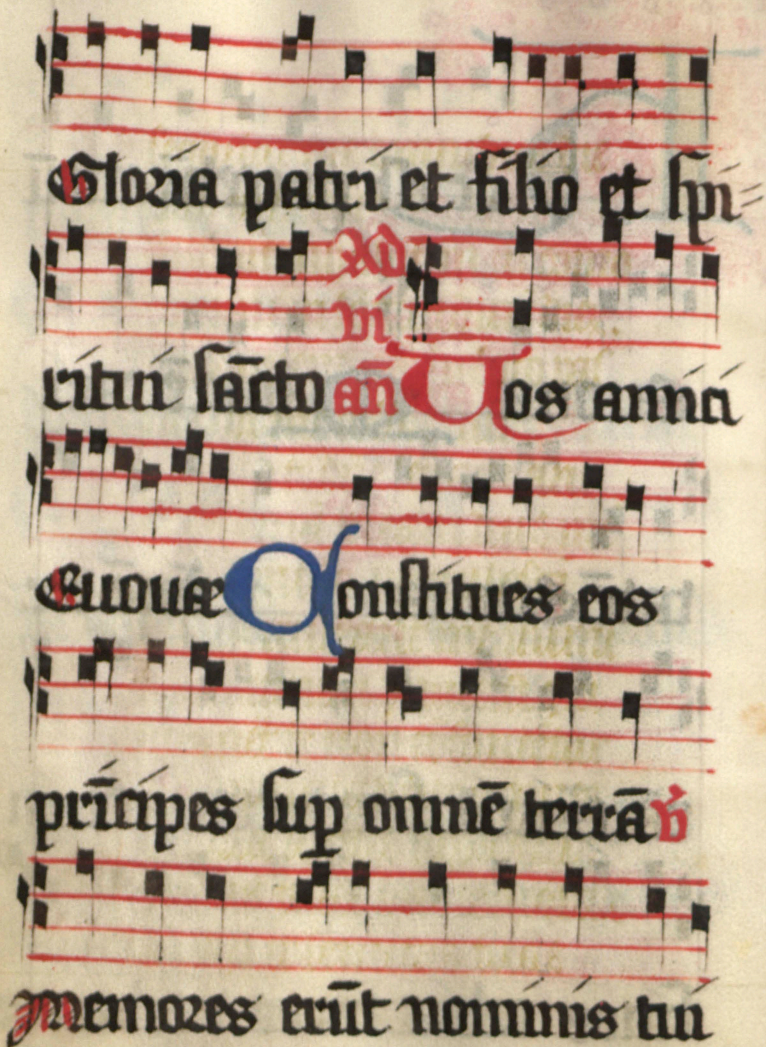 Gloria patri et filio et spi=
ritui sācto Ad vi an̄ Uos amici
Euouae Constitues eos
prīcipes sup omnē terrā v̄
Memores erūt nominis tui